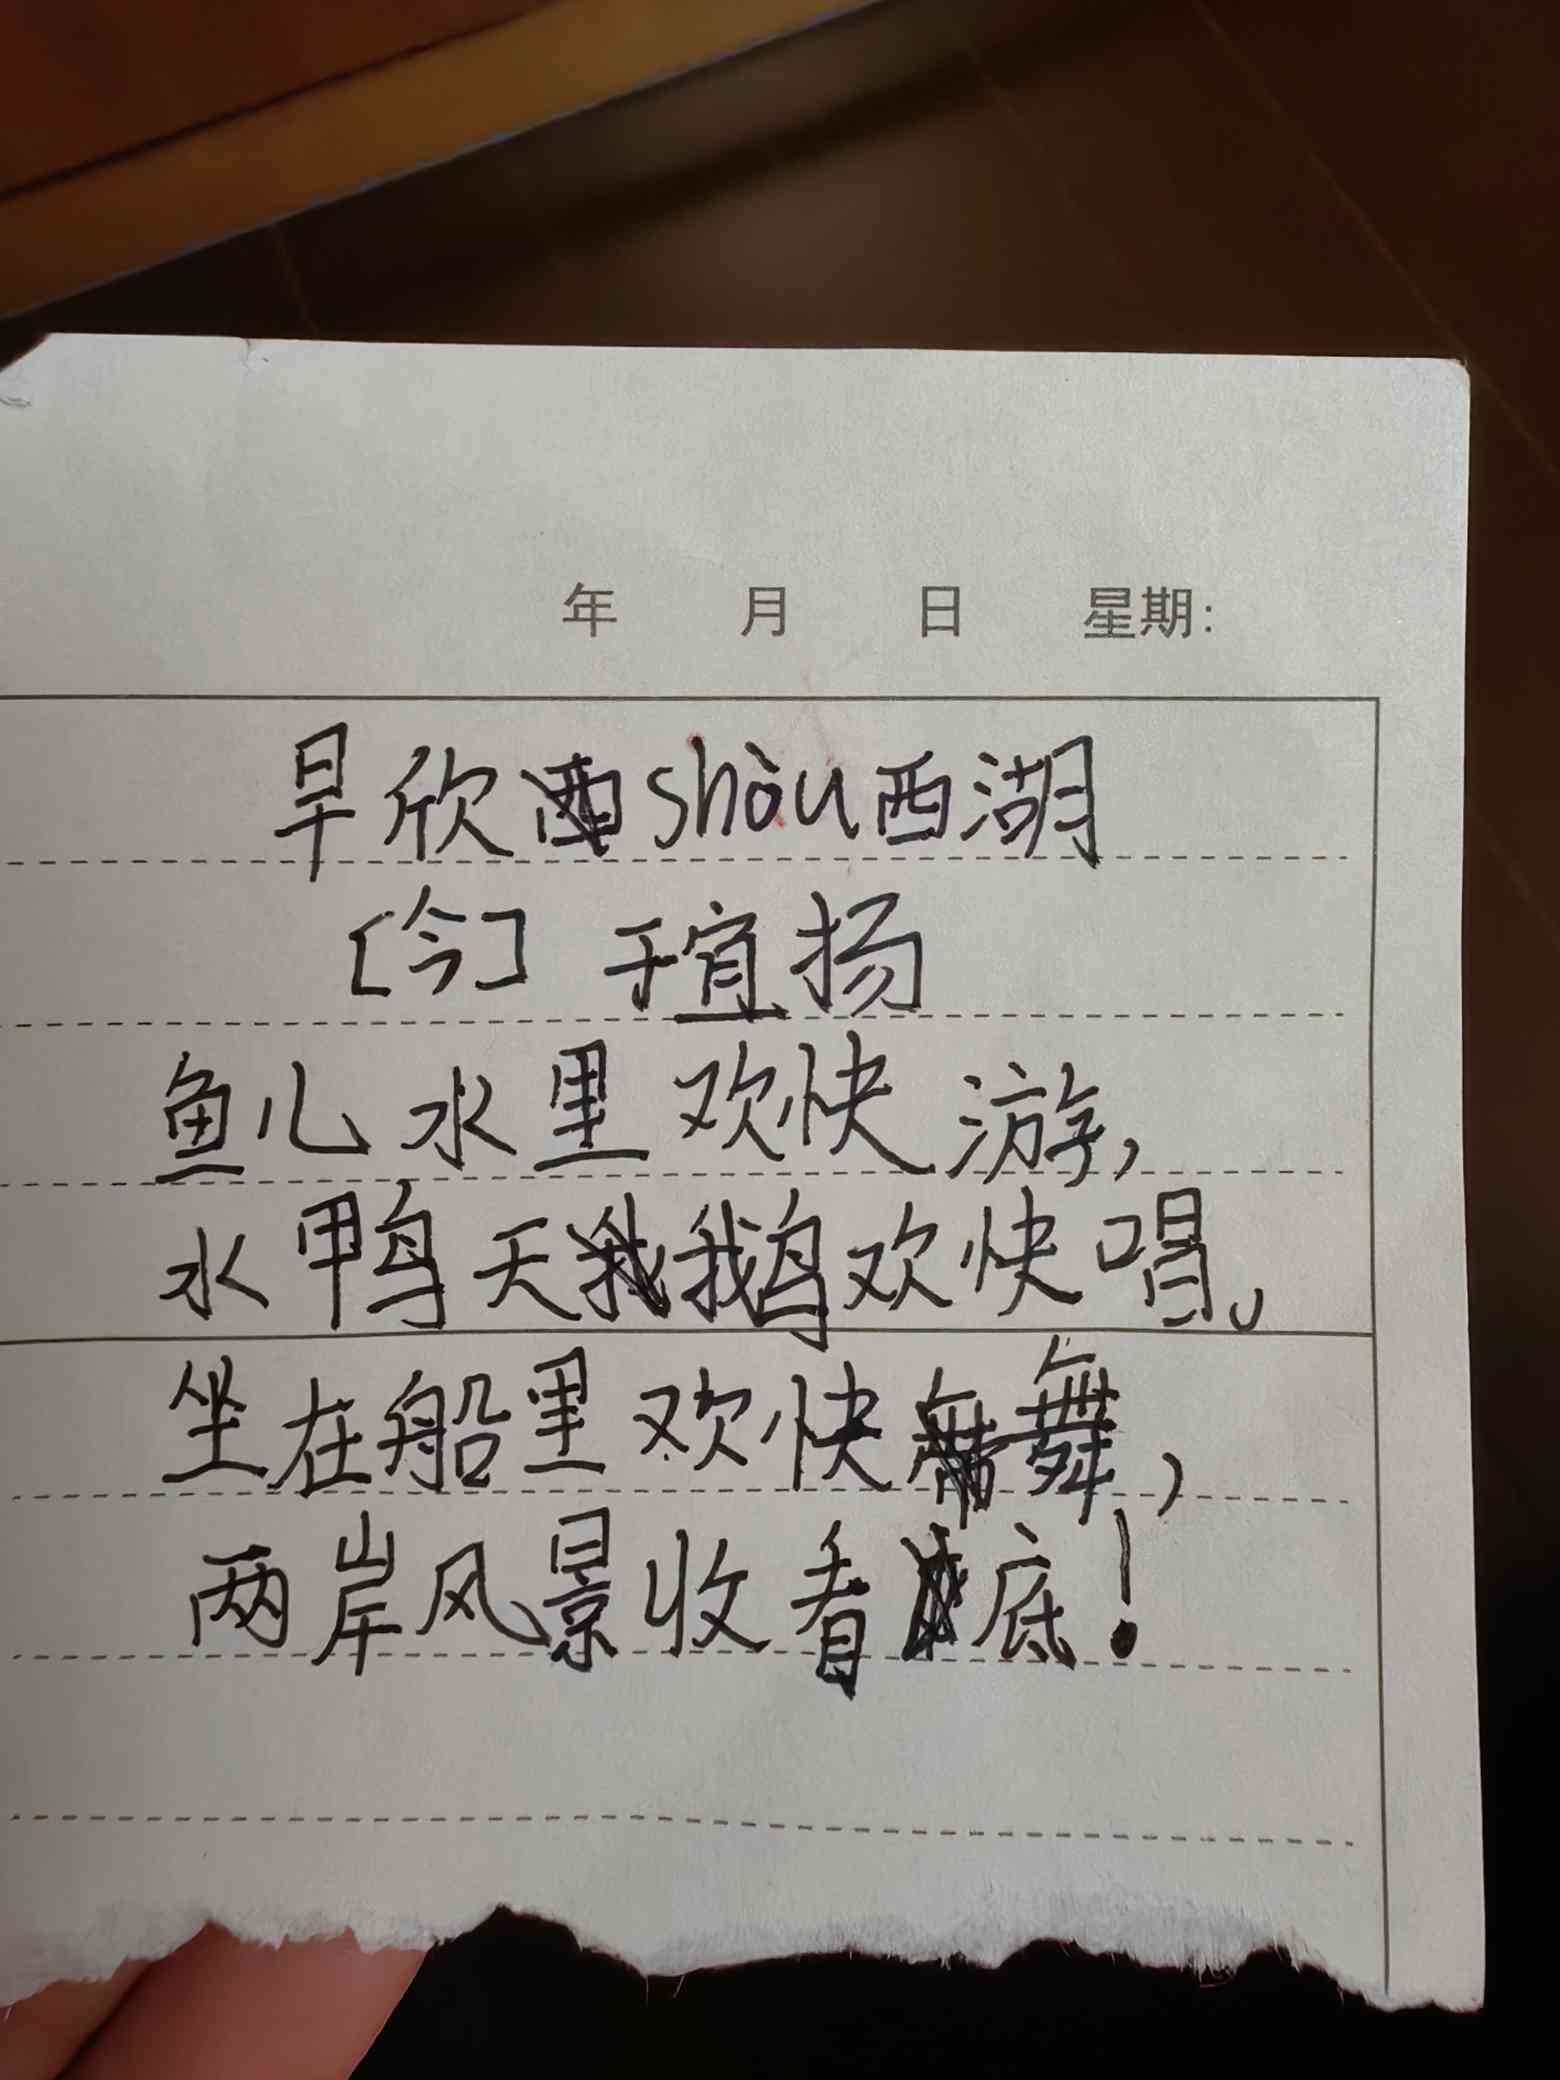 年 月 日 星期:
早欣shòu西湖
[今] 于宜扬
鱼儿水里欢快游,
水鸭天鹅欢快唱。
坐在船里欢快舞,
两岸风景收看底!